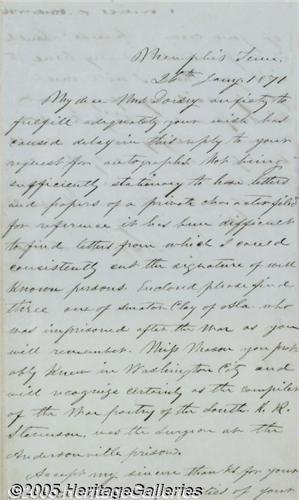 Memphis Tenn.
28th Jany. 1871
My dear Mrs Dorsey anxiety to
fulfill adequately your wish has
caused delay in this reply to your
request for autographs. Not being
sufficiently stationary to have letters
and papers of a private character filed
for reference it has been difficult
to find letters from which I could
consistently cut the signature of well
known persons. Enclosed please find
three one of senator Clay of Ala. who
was imprisoned after the War as you
will remember. Miss Mason you prob
ably knew in Washington City and
will recognize certainly as the compiler
of the War poetry of the South. R. R.
Stevenson, was the surgeon at the
Andersonville prison.
Accept my sincere thanks for your
of your
©2005 HeritageGalleries